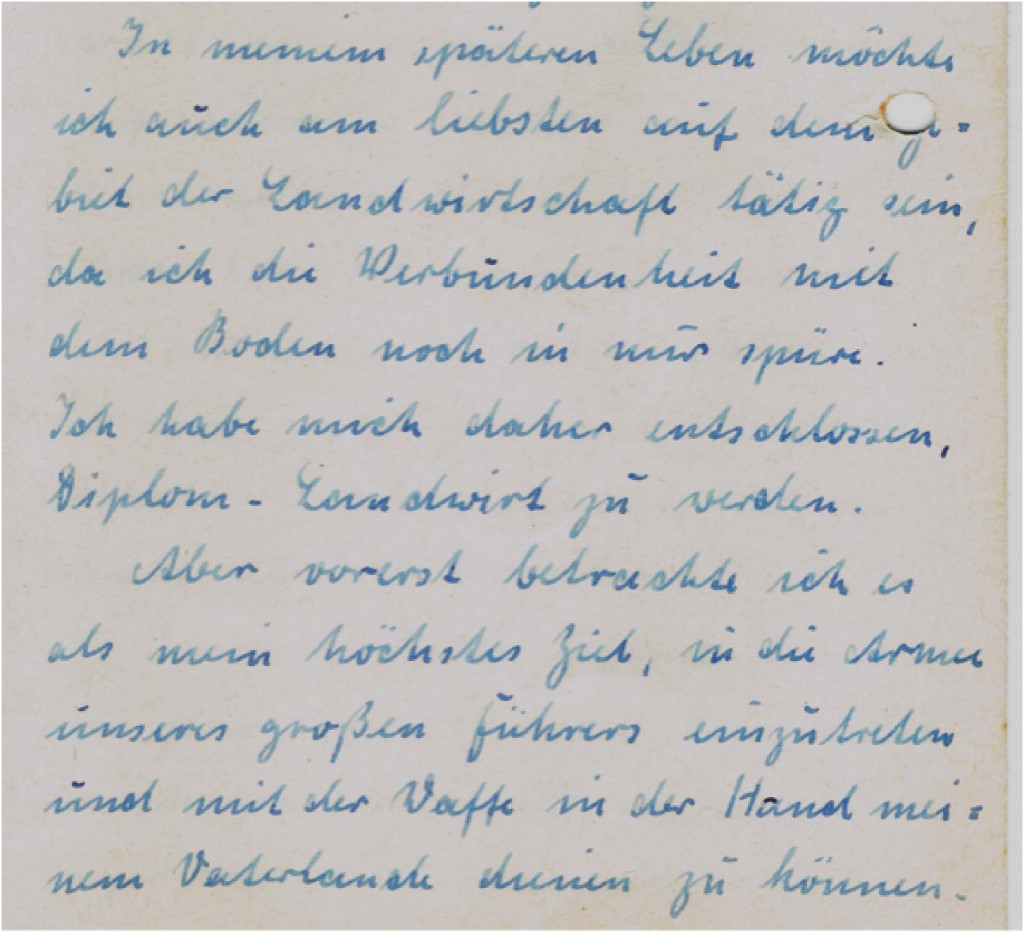 In meinem späteren Leben möchte
ich auch am liebsten auf dem
biet der Landwirtschaft tätig sein,
da ich die Verbundenheit mit
dem Boden noch in mir spüre.
Ich habe mich daher entschlossen,
Diplom - Landwirt zu werden.
Aber vorerst betrachte ich es
als mein höchstes Ziel, in die Armee
unseres großen Führers einzutreten
und mit der Waffe in der Hand mei=
nem Vaterlande dienen zu können.